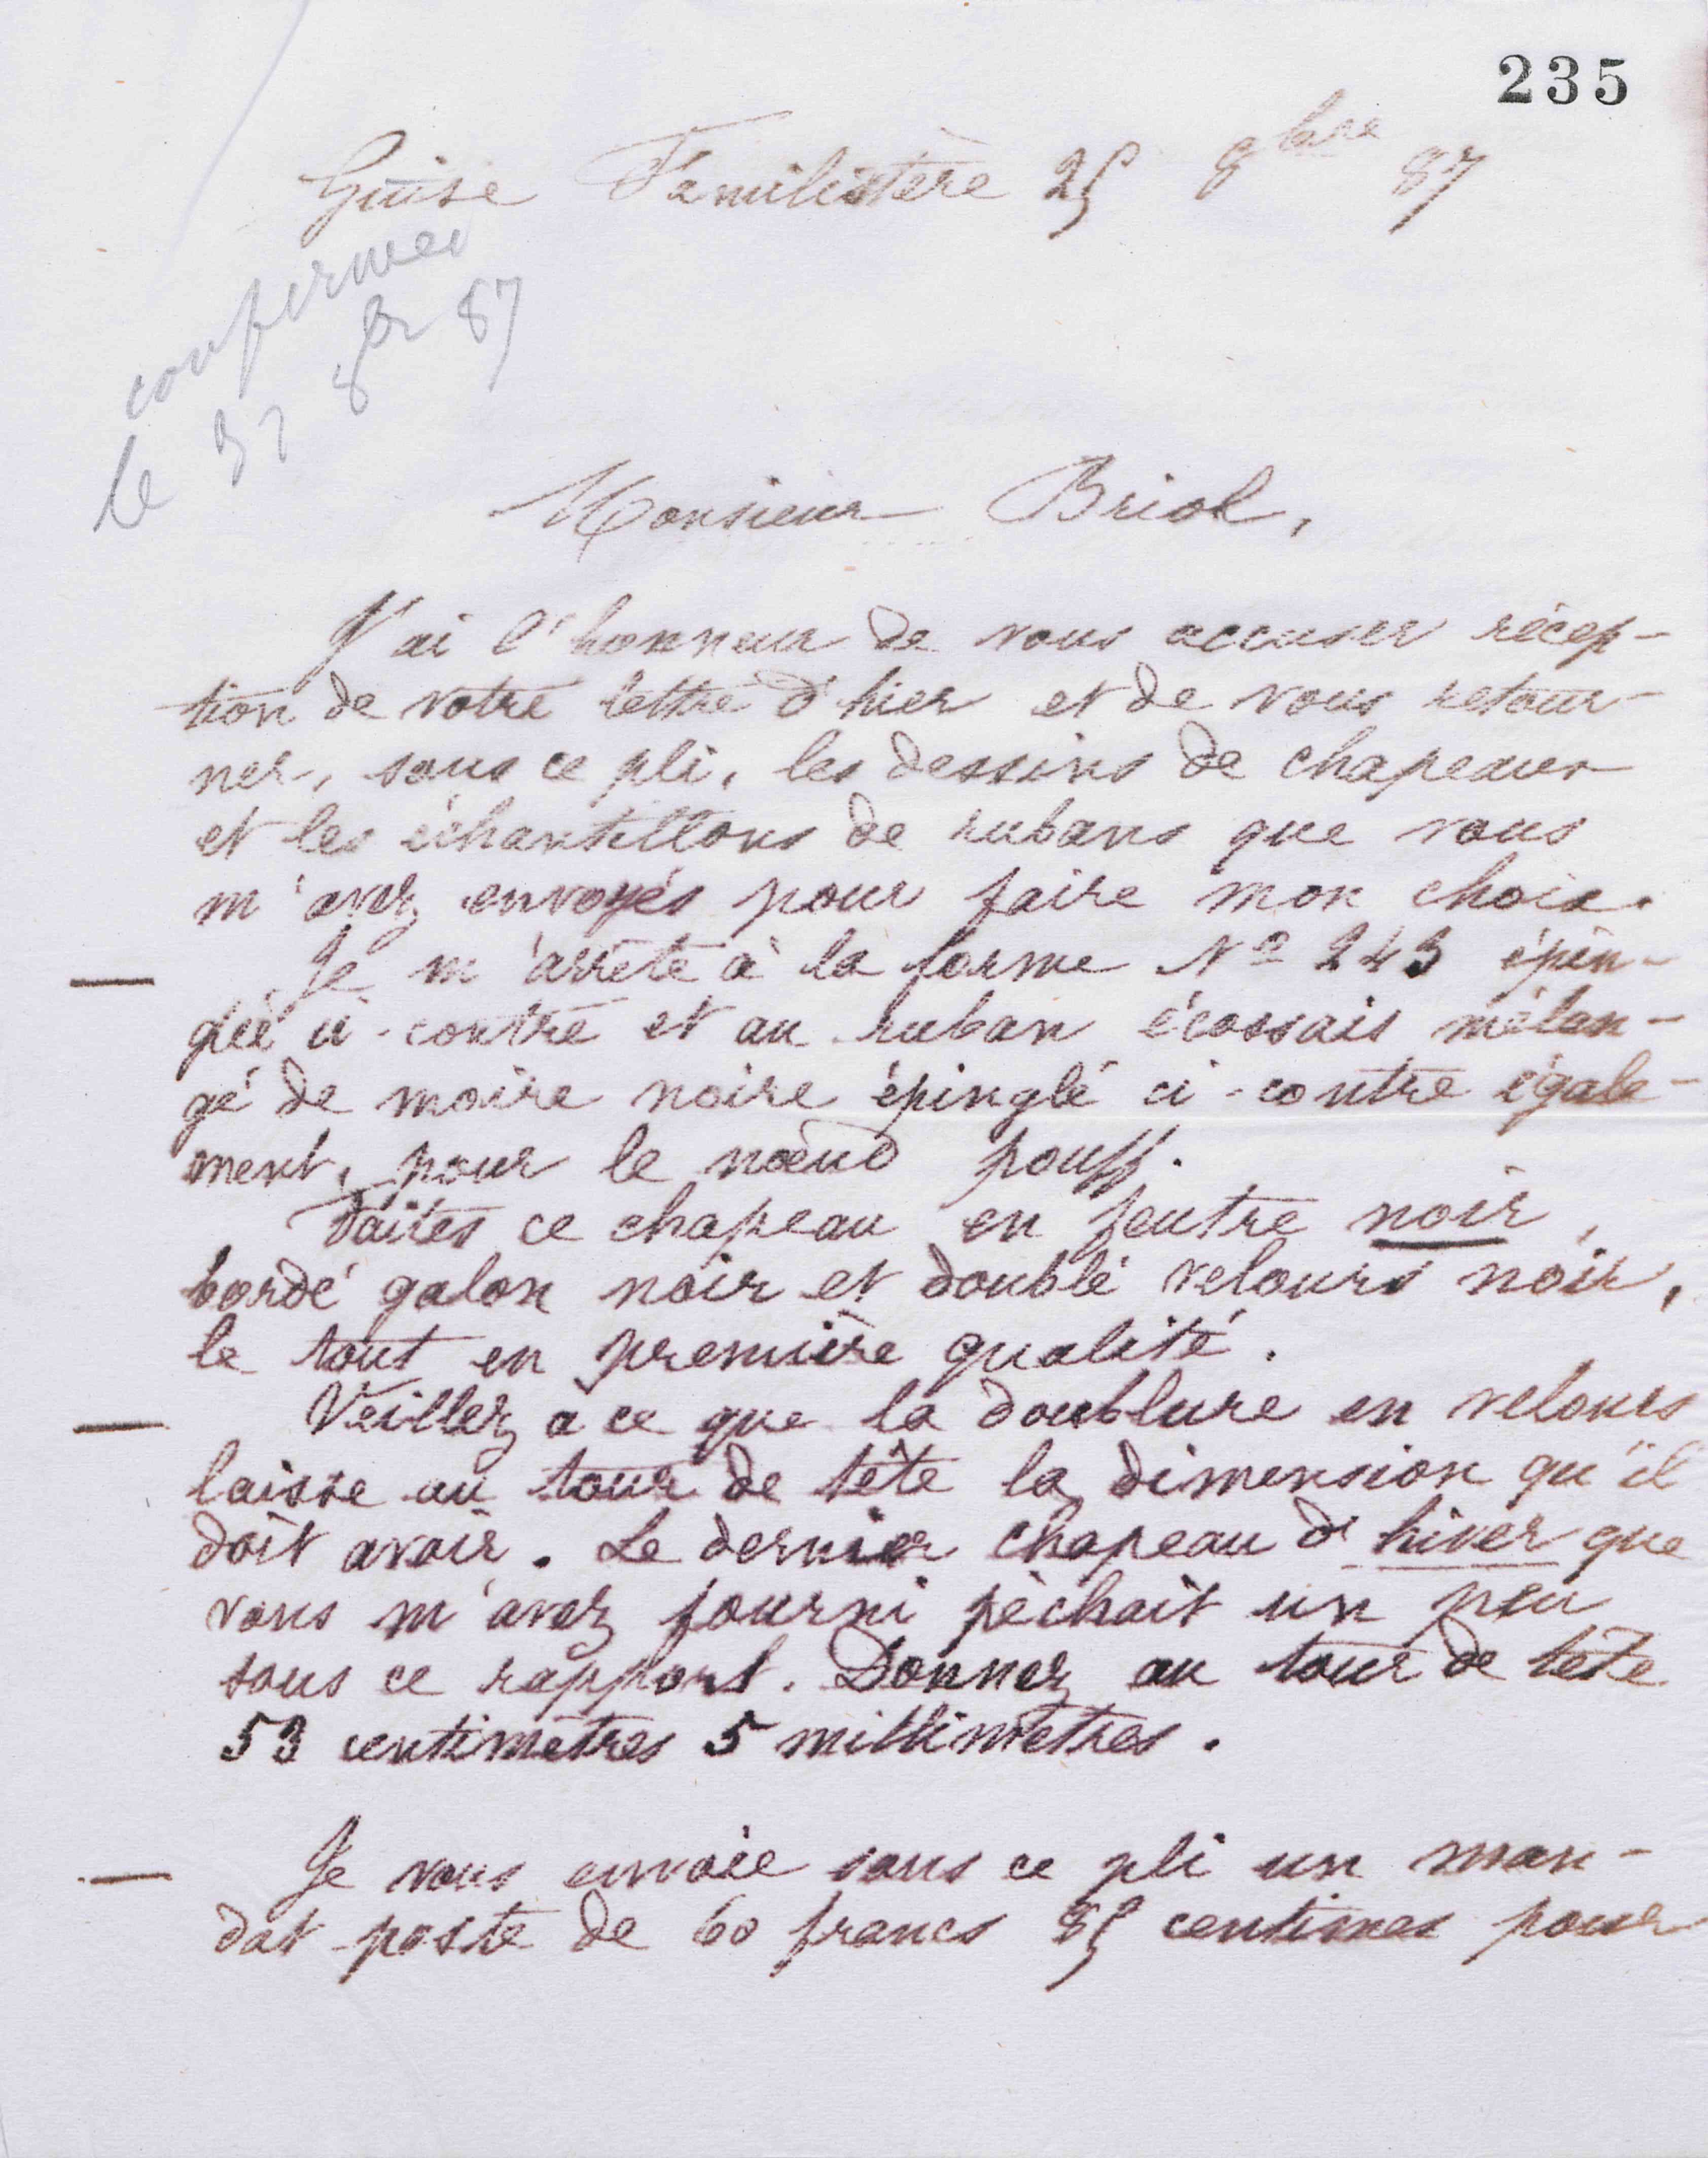 235
Guise Familistère 25 8bre 87
confirmée
le 8br 87
Monsieur Briol,
J'ai l'honneur de vous accuser récep-
tion de votre lettre d'hier et de vous retour-
ner, sous ce pli, les dessins de chapeaux
et les échantillons de rubans que vous
m'avez envoyés pour faire mon choix.
Je m'arrête à la forme No 243 épin-
glée ci-contre et au ruban écossais mélan-
gé de moire noire épinglé ci-contre égale-
ment, pour le nœud pouff.
Faites ce chapeau en feutre noir,
bordé galon noir et doublé velours noir,
le tout en première qualité.
Veillez à ce que la doublure en velours
laisse au tour de tête la dimension qu'il
doit avoir. Le dernier chapeau d'hiver que
vous m'avez fourni pèchait un peu
sous ce rapport. Donnez au tour de tête
53 centimètres 5 millimètres.
Je vous envoie sous ce pli un man-
dat-poste de 60 francs 85 centimes pour